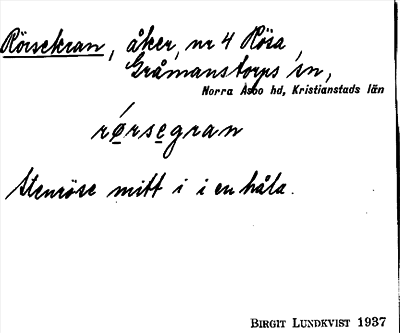 Rörsekran, åker, nr 4 Röra,
Gråmanstorps sn,
Norra Åsbo hd, Kristianstads län
rørsegran
Stenröse mitt i i en håla.
BIRGIT LUNDKVIST 1937